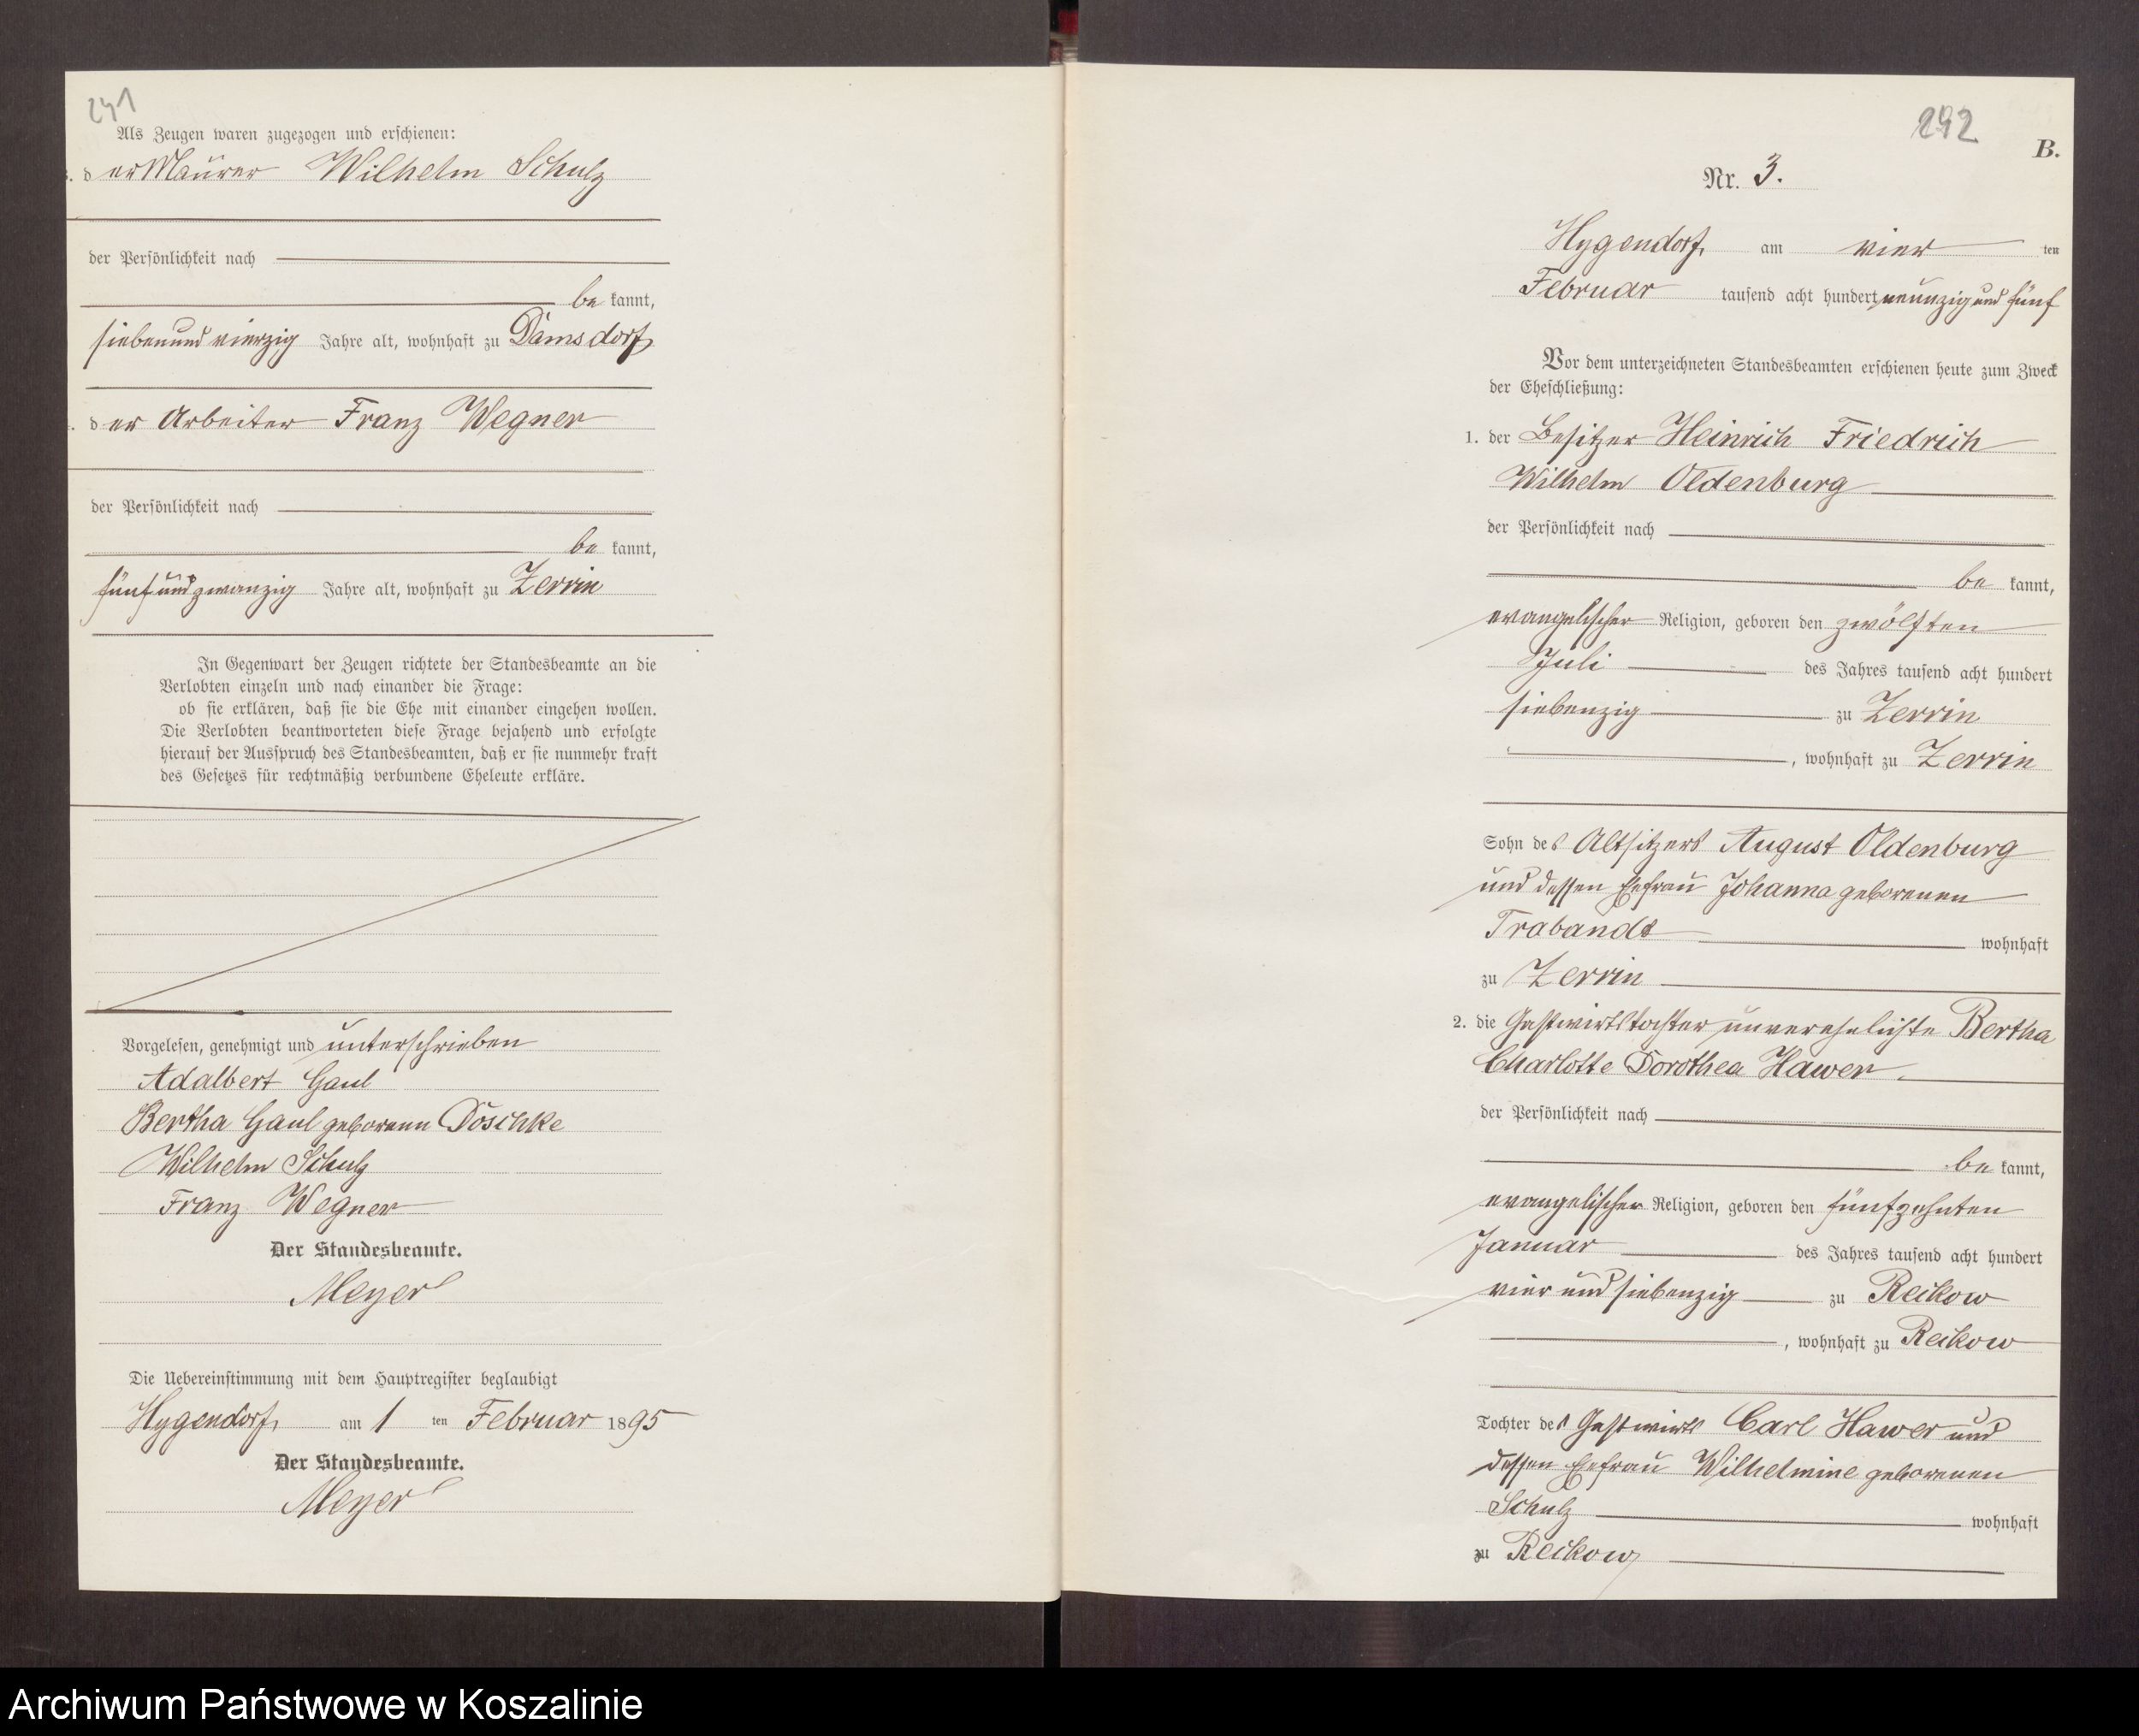 241
Als Zeugen waren zugezogen und erschienen:
der Maurer Wilhelm Schulz
der Persönlichkeit nach
be kannt,
siebenundvierzig Jahre alt, wohnhaft zu Damsdorf
der Arbeiter Franz Wegner
der Persönlichkeit nach
be kannt,
fünfundzwanzig Jahre alt, wohnhaft zu Zerrin
In Gegenwart der Zeugen richtete der Standesbeamte an die
Verlobten einzeln und nach einander die Frage:
ob sie erklären, daß sie die Ehe mit einander eingehen wollen.
Die Verlobten beantworteten diese Frage bejahend und erfolgte
hierauf der Ausspruch des Standesbeamten, daß er sie nunmehr kraft
des Gesetzes für rechtmäßig verbundene Eheleute erkläre.
Vorgelesen, genehmigt und unterschrieben
Adalbert Gaul
Bertha Gaul geborene Döschke
Wilhelm Schulz
Franz Wegner
Der Standesbeamte.
Meyer
Die Uebereinstimmung mit dem Hauptregister beglaubigt
Hygendorf, am 1 ten Februar 1895
Der Standesbeamte.
Meyer
292
B.
Nr. 3.
Hygendorf, am vier ten
Februar tausend acht hundert neunzig und fünf
Vor dem unterzeichneten Standesbeamten erschienen heute zum Zweck
der Eheschließung:
1. der Besitzer Heinrich Friedrich
Wilhelm Oldenburg
der Persönlichkeit nach
be kannt,
evangelischer Religion, geboren den zwölften
Juli des Jahres tausend acht hundert
siebenzig zu Zerrin
, wohnhaft zu Zerrin
Sohn des Altsitzers August Oldenburg
und dessen Ehefrau Johanna geborenen
Trabandt wohnhaft
zu Zerrin
2. die Gastwirtstochter unverehelichte Bertha
Charlotte Dorothea Hawer.
der Persönlichkeit nach
be kannt,
evangelischer Religion, geboren den fünfzehnten
Januar des Jahres tausend acht hundert
vier und siebenzig zu Reckow
, wohnhaft zu Reckow
Tochter des Gastwirts Carl Hawer und
dessen Ehefrau Wilhelmine geborenen
Schulz wohnhaft
zu Reckow
Archiwum Państwowe w Koszalinie